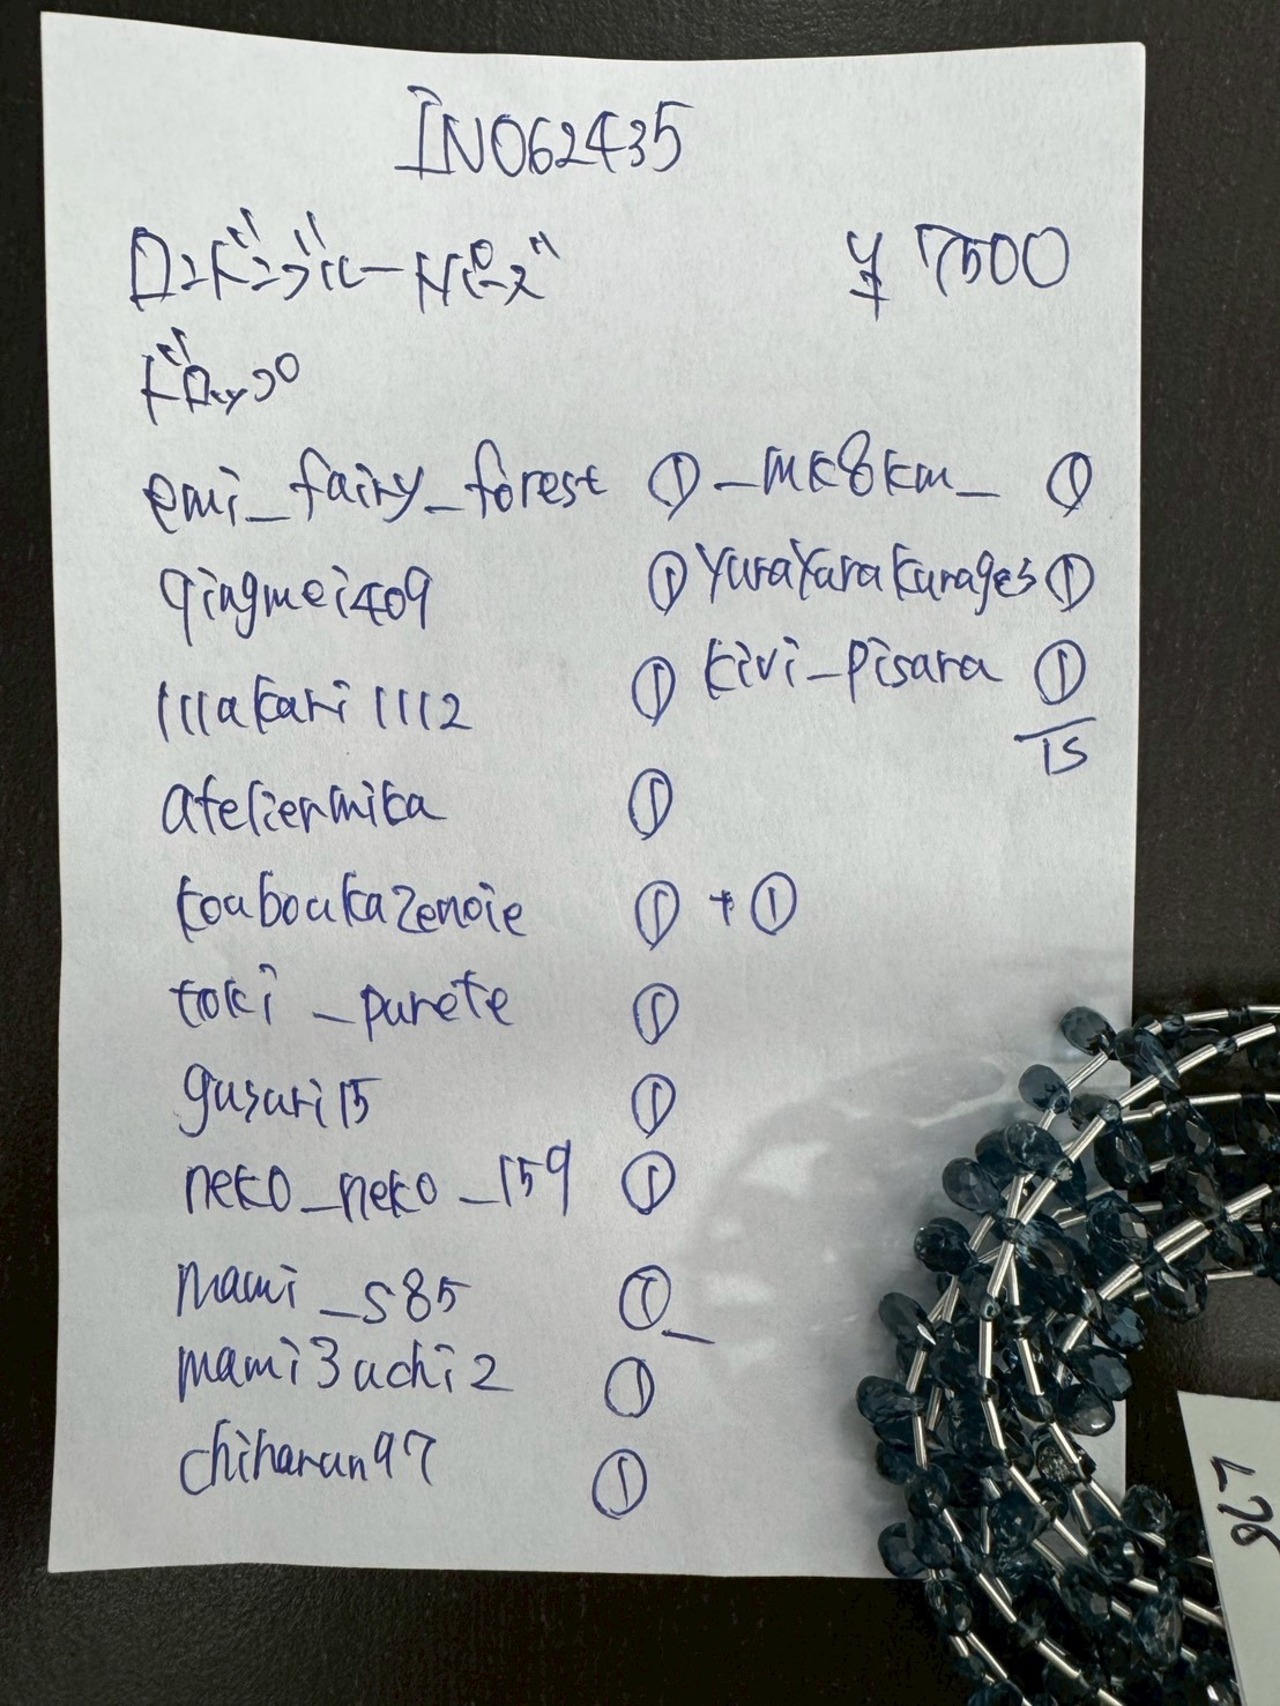 IN062435
ロンドンブルートパーズ ¥7500
ドロップ
emi_fairy_forest ①
qingmei409 ①
111akari1112 ①
ateliermika ①
kouboukazenoie ① + ①
toki_purete ①
gusuri15 ①
neko_neko_159 ①
mami_s85 ①
mami3uchi2 ①
chiharun97 ①
_mk8km_ ①
yurayurakurages ①
kivi_pisara ①
15
L76